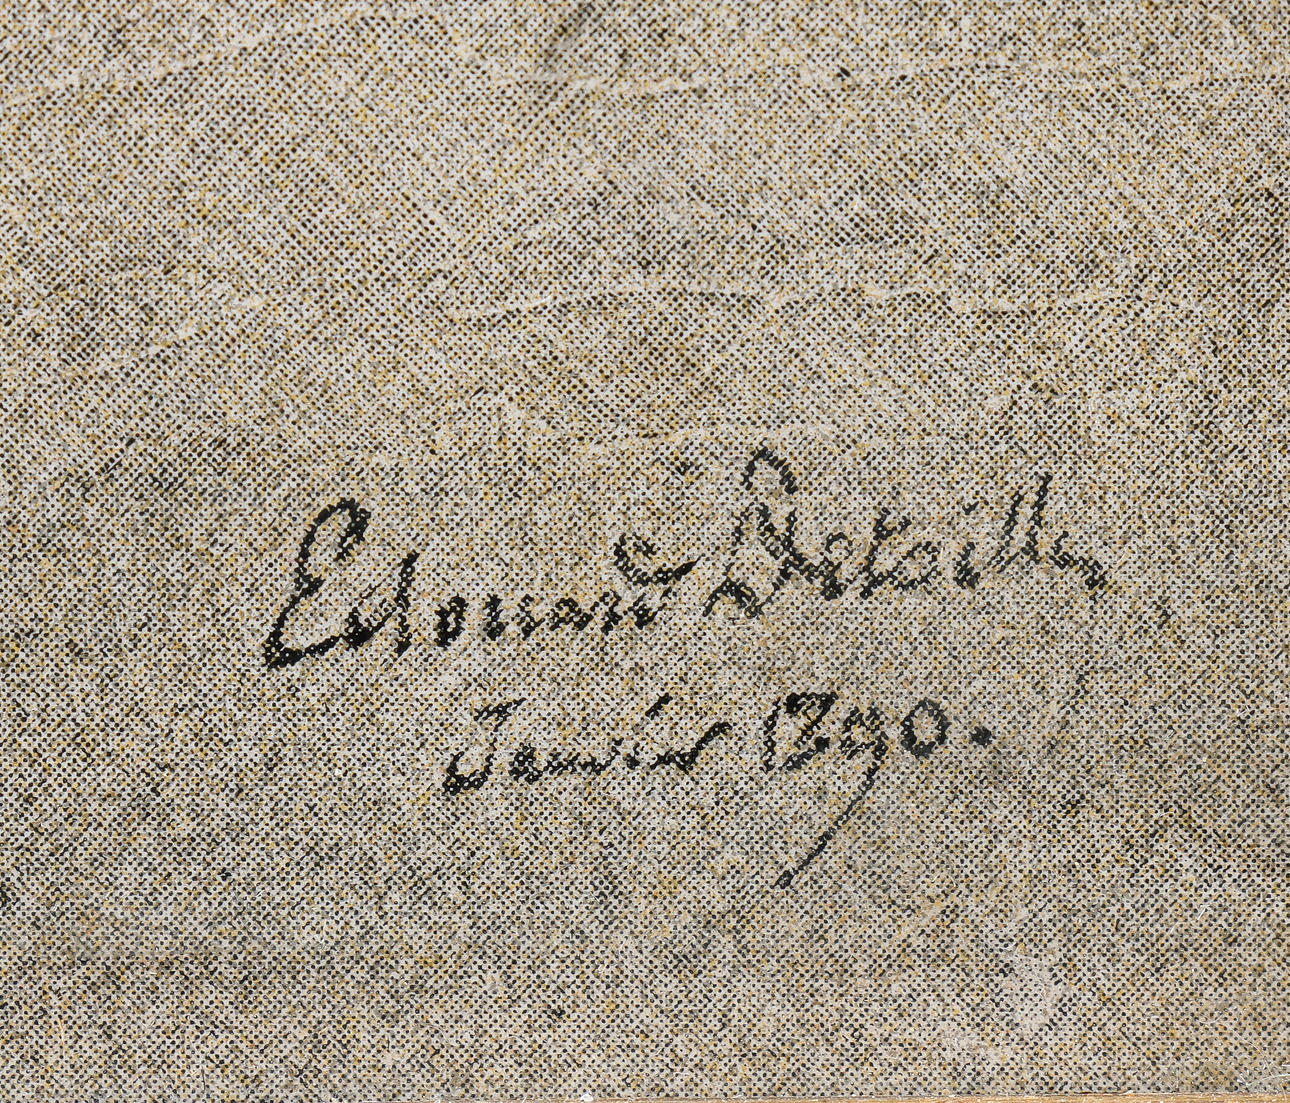 Edouard Detaille
Janvier 1890.